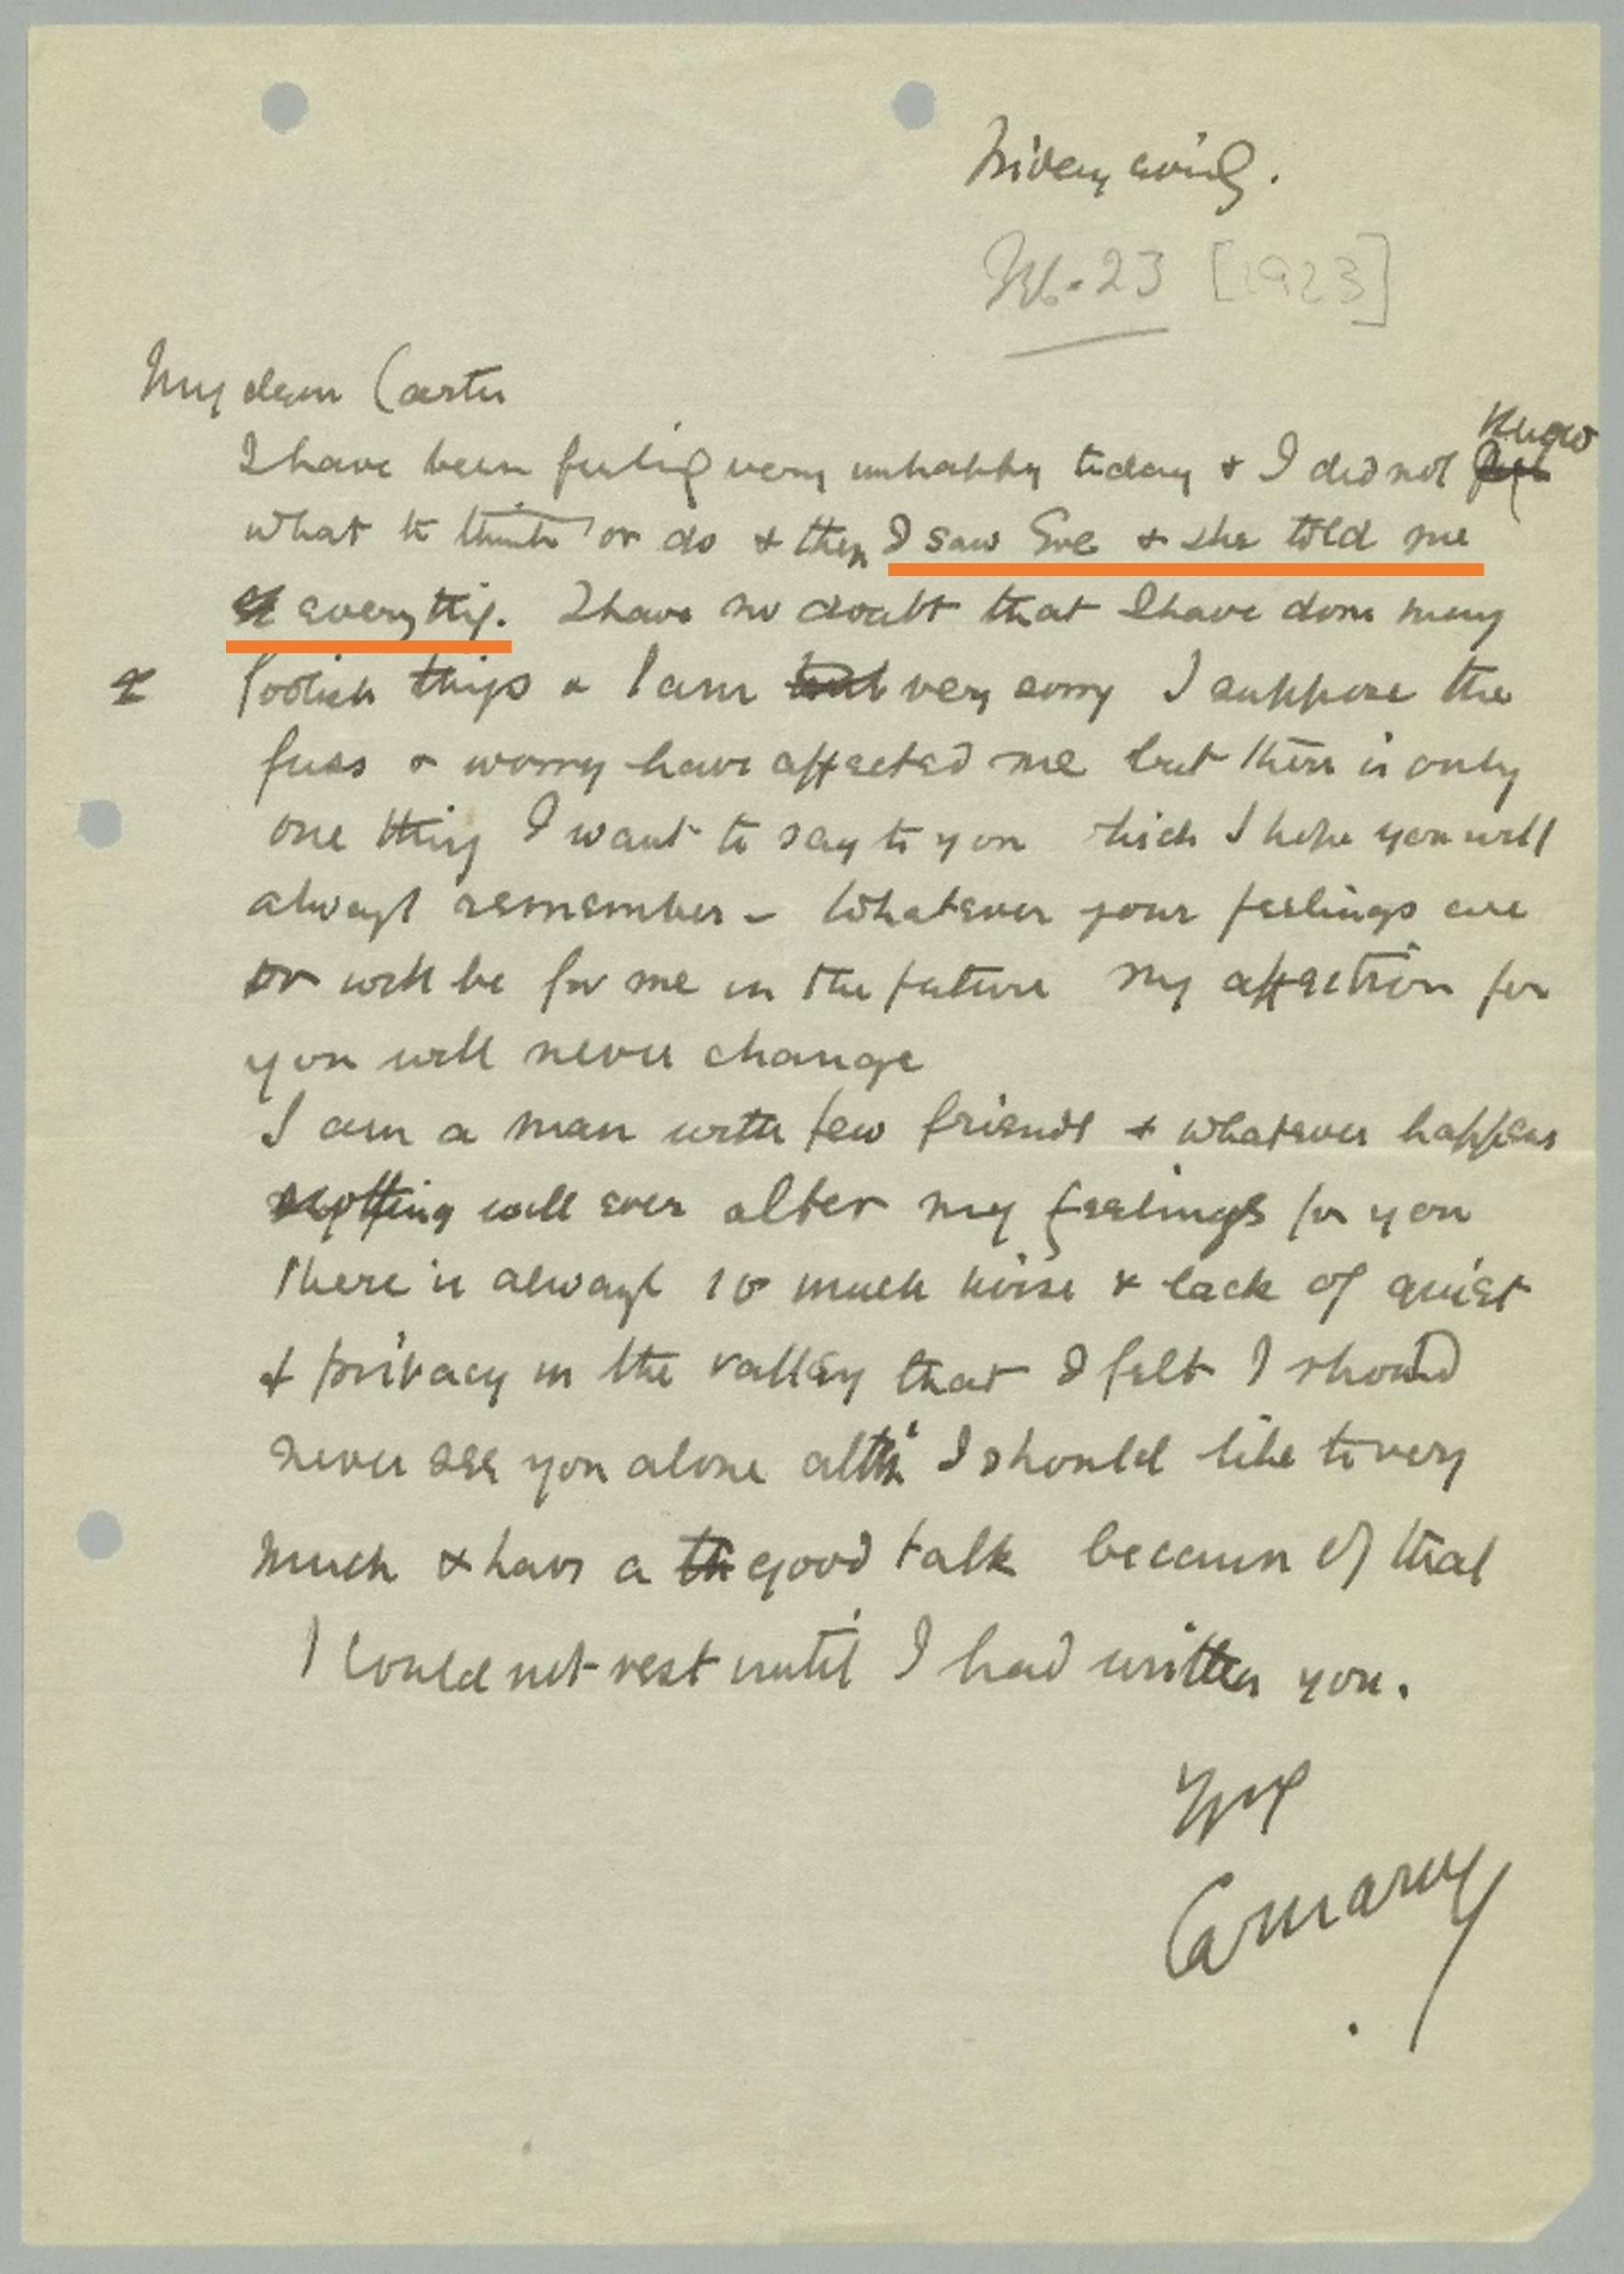 Friday evening.
Feb. 23 [1923]
My dear Carter
know
I have been feeling very unhappy today & I did not feel
what to think or do & then I saw Eve & she told me
everything. I have no doubt that I have done many
foolish things & I am very sorry I suppose the
fuss & worry have affected me but there is only
one thing I want to say to you which I hope you will
always remember - Whatever your feelings are
or will be for me in the future my affection for
you will never change
I am a man with few friends & whatever happens
nothing will ever alter my feelings for you
There is always so much noise & lack of quiet
& privacy in the valley that I felt I should
never see you alone altho' I should like to very
much & have a th good talk because of that
I could not rest until I had written you.
Yrs
Carnarvon